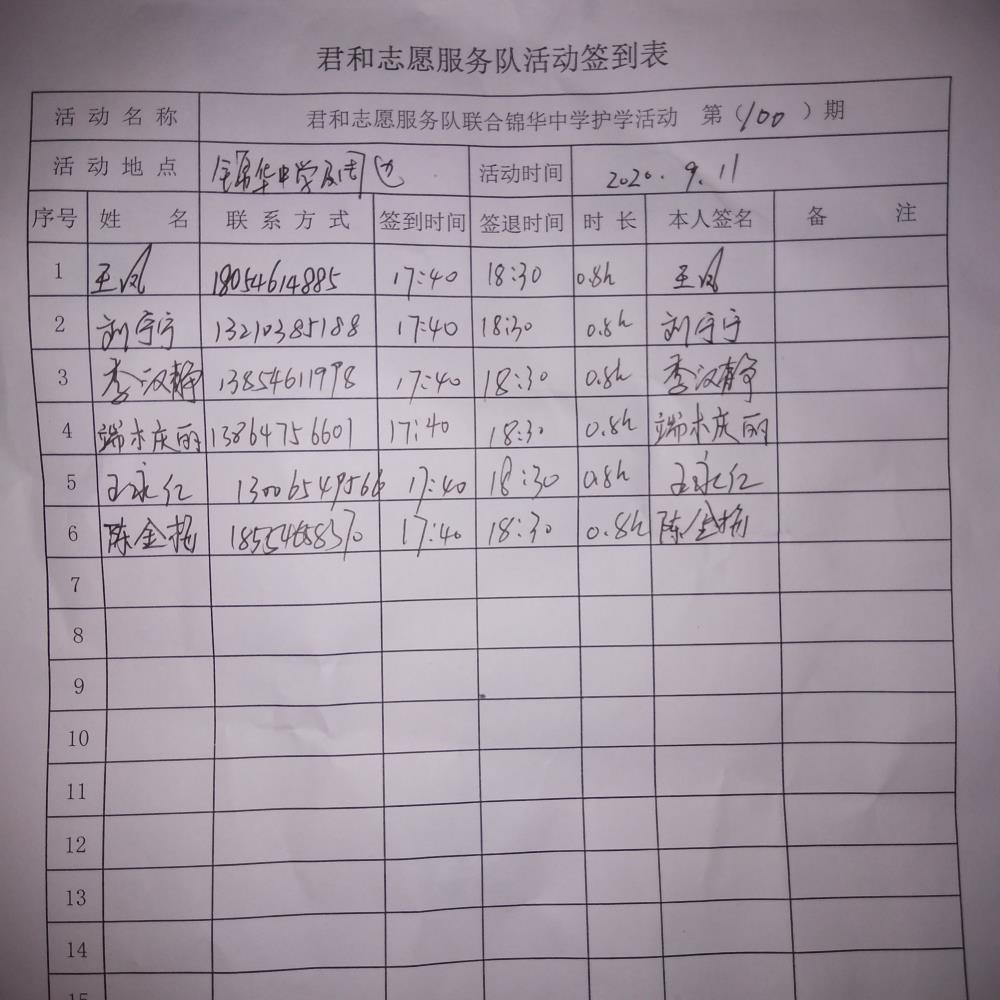 君和志愿服务队活动签到表
活动名称 君和志愿服务队联合锦华中学护学活动 第(100)期
活动地点 锦华中学及周边 活动时间 2020.9.11
序号 姓名 联系方式 签到时间 签退时间 时长 本人签名 备注
1 王凤 18054614885 17:40 18:30 0.8h 王凤
2 刘宁宁 13210385188 17:40 18:30 0.8h 刘宁宁
3 李汉静 13854611998 17:40 18:30 0.8h 李汉静
4 端木庆丽 13864756601 17:40 18:30 0.8h 端木庆丽
5 王永仁 13006549566 17:40 18:30 0.8h 王永仁
6 陈金杨 17:40 18:30 0.8h 陈金杨
7
8
9
10
11
12
13
14
15